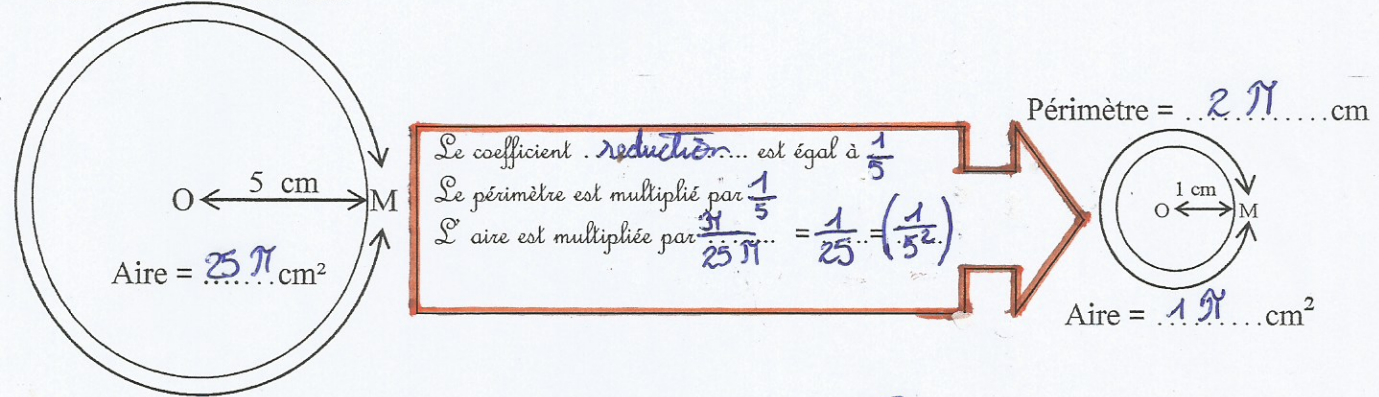 O 5 cm M
Aire = 25 π cm²
Le coefficient . reduction .... est égal à 1/5
Le périmètre est multiplié par 1/5
L' aire est multipliée par π/25 π = 1/25 .. = (1/5²)
Périmètre = .. 2 π ........ cm
1 cm
O M
Aire = ... 1 π ...... cm²